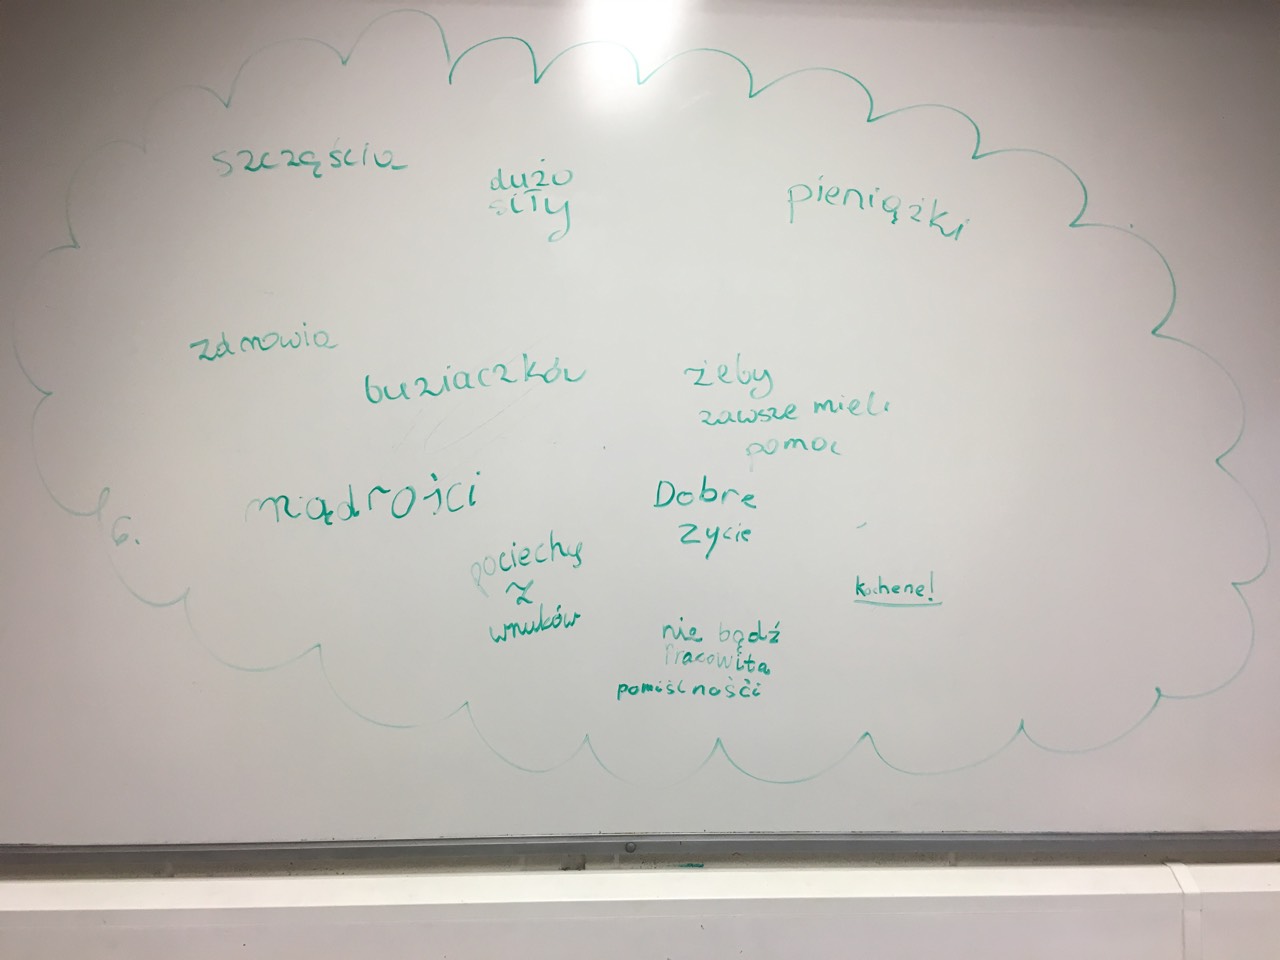 szczęścia
dużo
siły
pieniążki
zdrowia
buziaczków
żeby
zawsze mieli
pomoc
mądrości
Dobre
życie
6.
pociechy
z
wnuków
kochene!
nie bądź
Pracowita
pomiślnośći